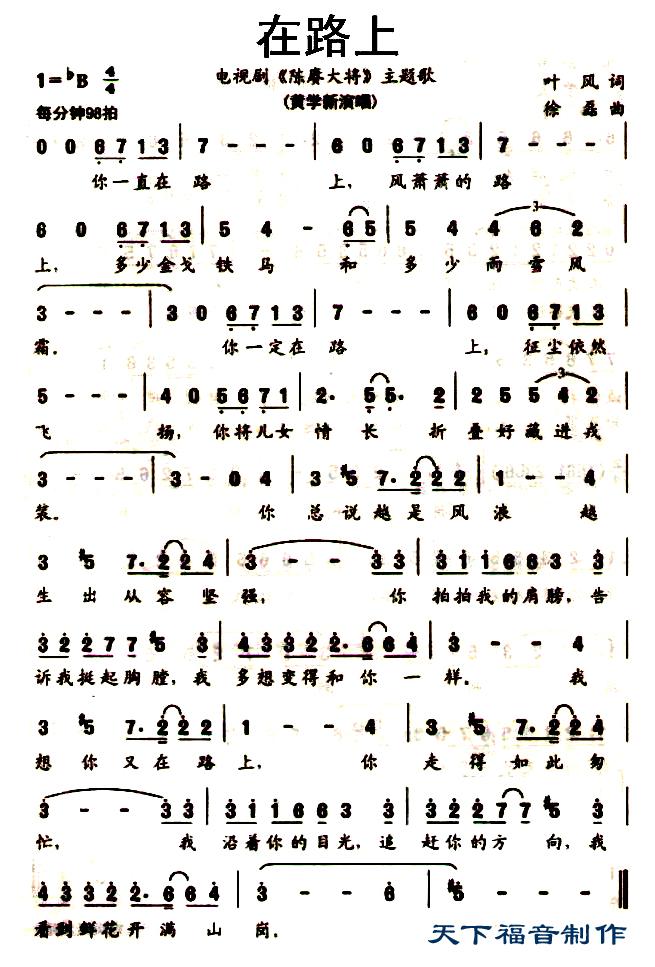 在路上
1=♭B 4/4 电视剧《陈赓大将》主题歌 叶风词
每分钟98拍 (黄学新演唱) 徐磊曲
0 0 6 7 1 3 | 7 - - - | 6 0 6 7 1 3 | 7 - - - |
你一直在路 上, 风萧萧的路
6 0 6 7 1 3 | 5 4 - 6 5 | 5 4 4 6 2 |
上, 多少金戈铁马和多少雨雪风
3 - - - | 3 0 6 7 1 3 | 7 - - - | 6 0 6 7 1 3 |
霜。 你一定在路 上, 征尘依然
5 - - - | 4 0 5 6 7 1 | 2· 5 5· 2 | 2 5 5 4 2 |
飞 扬, 你将儿女情长 折叠好藏进戎
3 - - - | 3 - 0 4 | 3 #5 7· 2 2 2 | 1 - - 4 |
装。 你总说越是风浪越
3 #5 7· 2 2 4 | 3 - - 3 3 | 3 1 1 6 6 3 3 |
生出从容坚强, 你拍拍我的肩膀, 告
3 2 2 7 7 #5 3 | 4 3 3 2 2· 6 6 4 | 3 - - 3 |
诉我挺起胸膛, 我多想变得和你一样。 我
3 #5 7· 2 2 2 | 1 - - 4 | 3 #5 7· 2 2 2 |
想你又在路上, 你走得如此匆
3 - - 3 3 | 3 1 1 6 6 3 3 | 3 2 2 7 7 #5 3 |
忙, 我沿着你的目光, 追赶你的方向, 我
4 3 3 2 2· 6 6 4 | 3 - - 6 | #5 - - - ‖
看到鲜花开满山岗。
天下福音制作